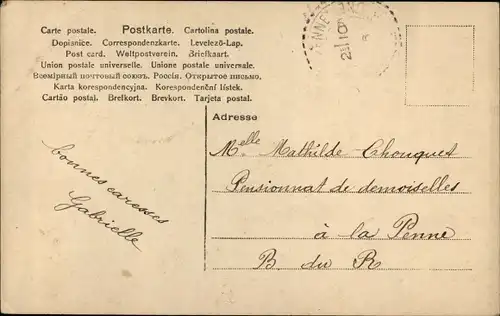 Carte postale. Postkarte. Cartolina postale.
Dopisnice. Correspondenzkarte. Levelező-Lap.
Post card. Weltpostverein. Briefkaart.
Union postale universelle. Unione postale universale.
Всемірный почтовый союзъ. Россія. Открытое письмо.
Karta korespondencyjna. Korespondenční lístek.
Cartão postal. Brefkort. Brevkort. Tarjeta postal.
Adresse
Melle Mathilde Chouquet
Pensionnat de demoiselles
à la Penne
B. du R
bonnes caresses
Gabrielle